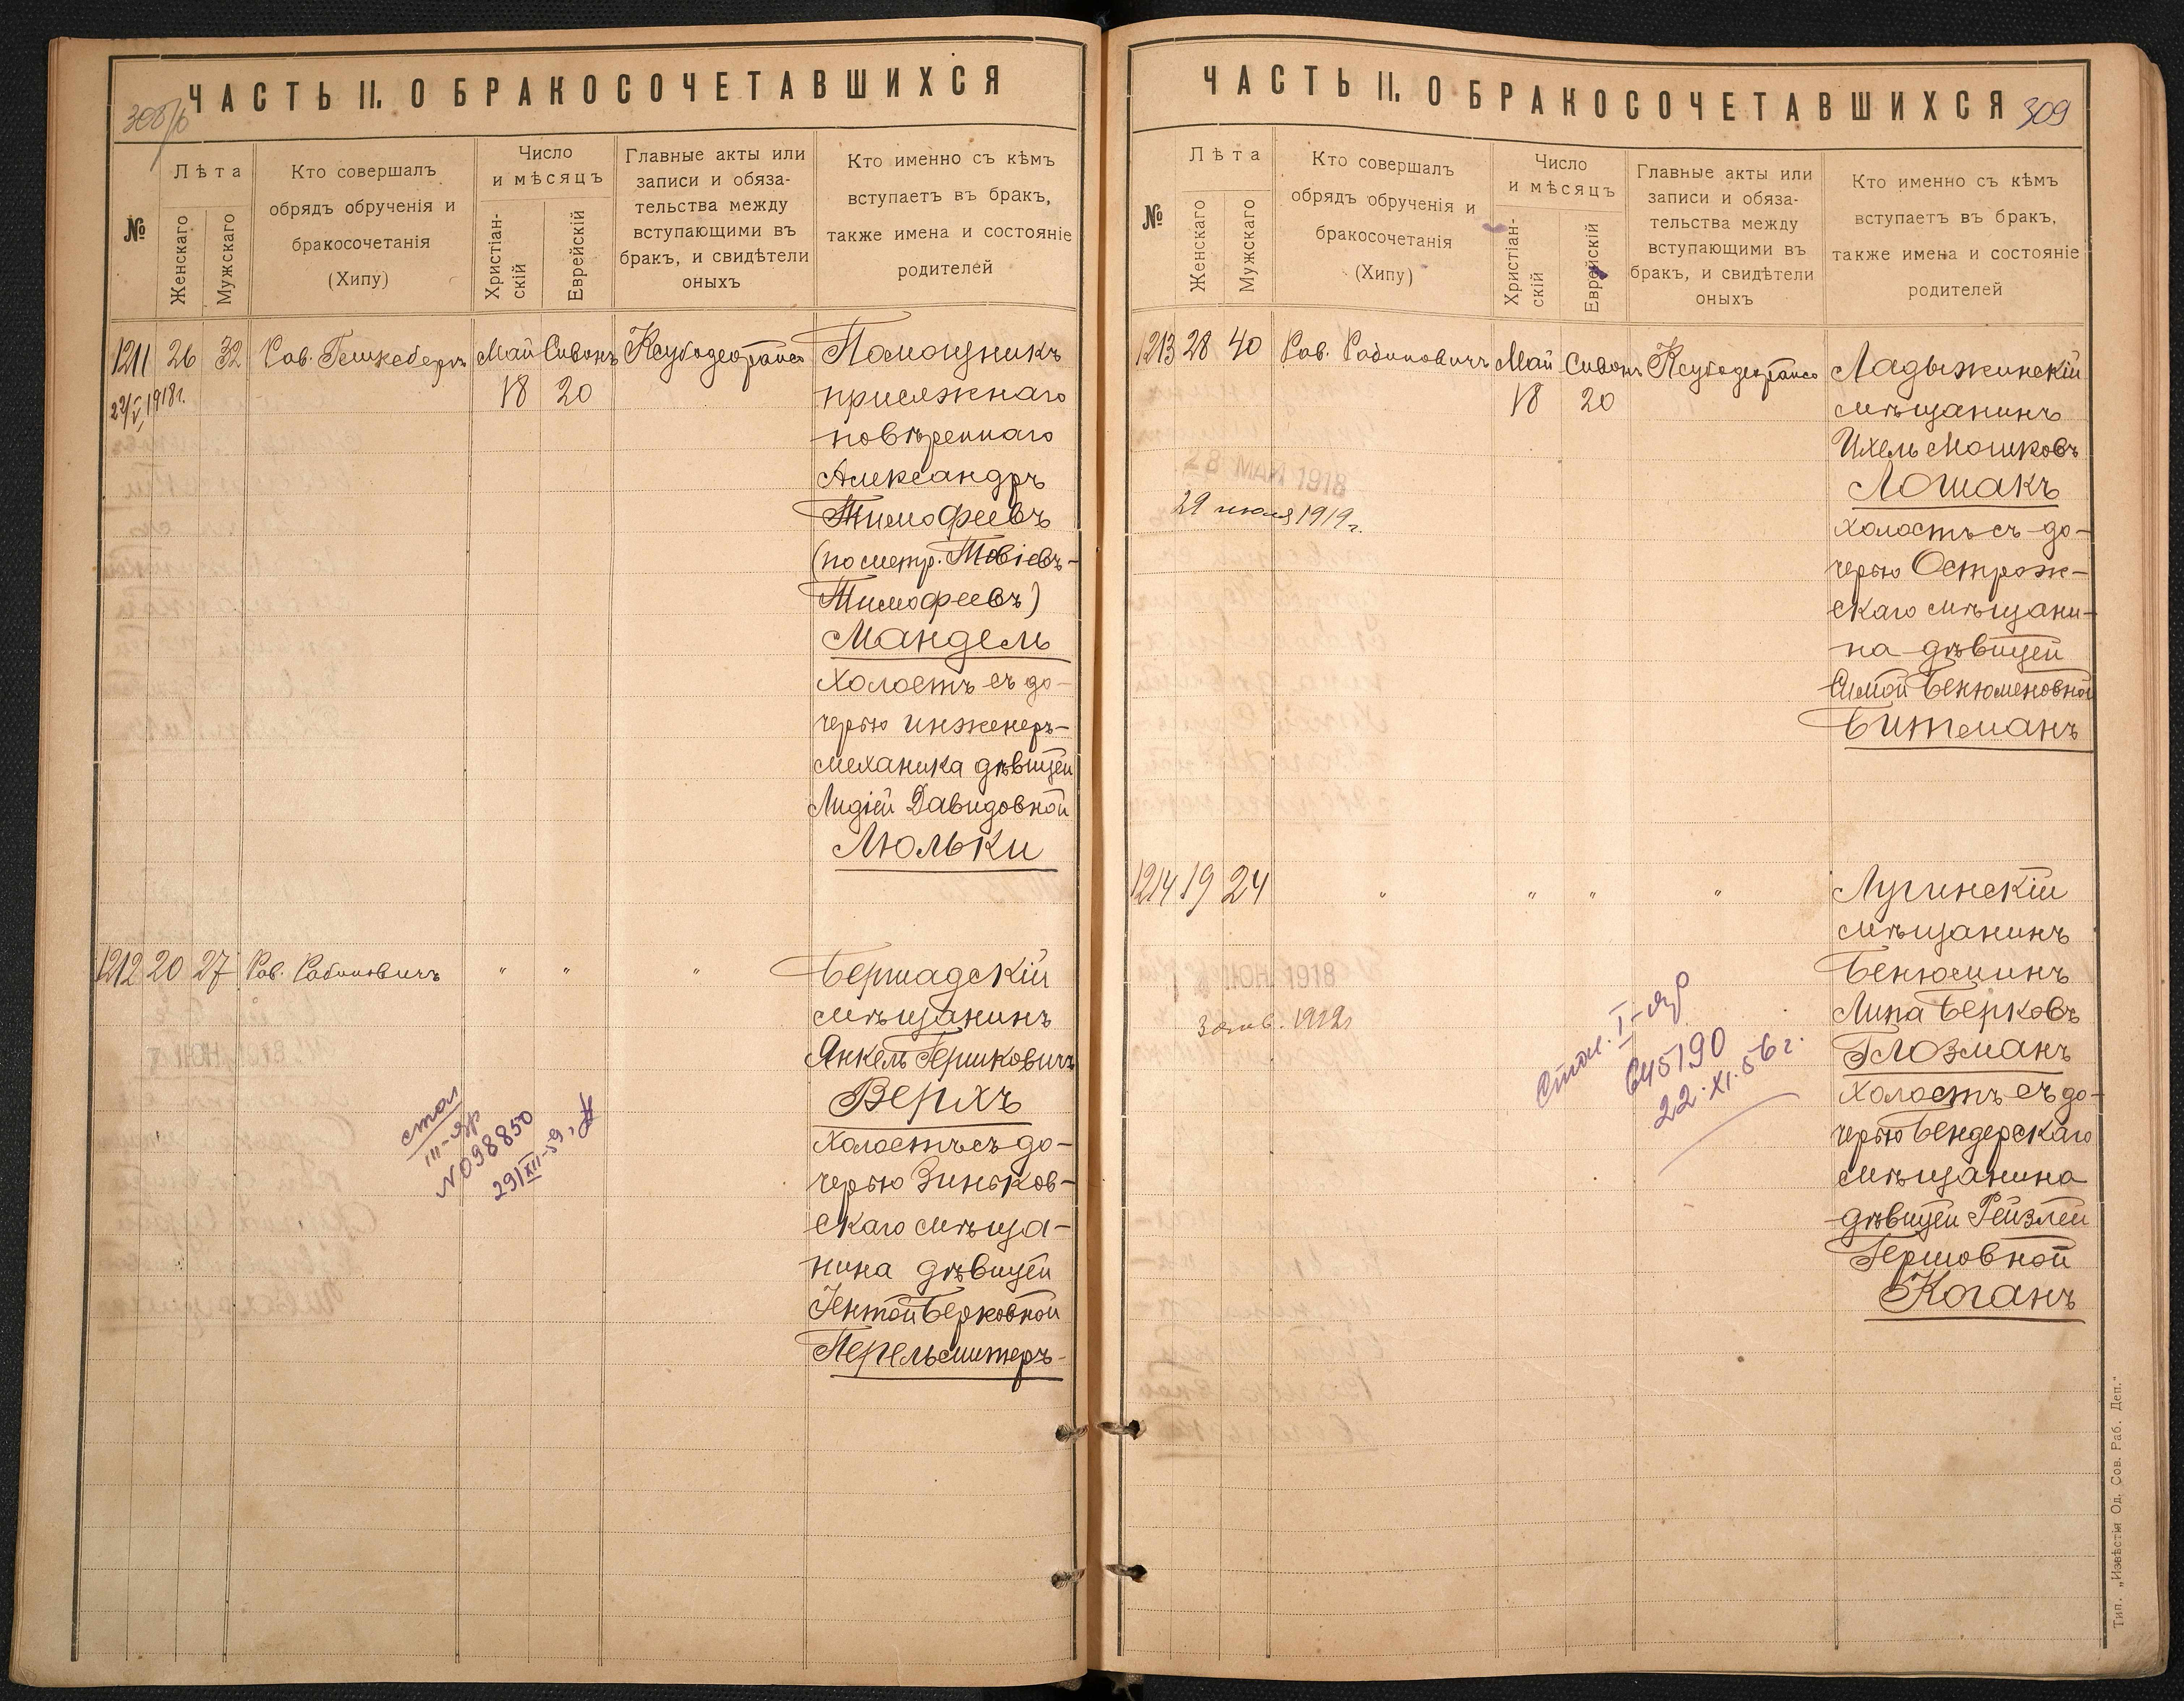 ЧАСТЬ II. О БРАКОСОЧЕТАВШИХСЯ
№
Лѣта
Женскаго
Мужскаго
Кто совершалъ
обрядъ обрученія и
бракосочетанія
(Хипу)
Число
и мѣсяцъ
Христіан-
скій
Еврейскій
Главные акты или
записи и обяза-
тельства между
вступающими въ
бракъ, и свидѣтели
оныхъ
Кто именно съ кѣмъ
вступаетъ въ бракъ,
также имена и состояніе
родителей
1211 26 32 Рав. Май Сивонъ
22/V 1918 г.
18 20
Помощникъ
присяжнаго
повѣреннаго
Александръ
Тимофеевъ
(по метр. Товіевъ-
Тимофеевъ)
Мандель
холостъ съ до-
черью инженеръ-
механика дѣвицей
Лидіей Давидовной
Люльки
1212 20 27 Рав. Рабиновичъ " " "
Бершадскій
мѣщанинъ
Янкель Гершковичъ
Верхъ
холостъ съ до-
черью Зиньков-
скаго мѣща-
нина дѣвицей
Гентой Берковной
Перельмитеръ
стол
III-яр
№ 098850
29/XII-59,
ЧАСТЬ II. О БРАКОСОЧЕТАВШИХСЯ
309
№
Лѣта
Женскаго
Мужскаго
Кто совершалъ
обрядъ обрученія и
бракосочетанія
(Хипу)
Число
и мѣсяцъ
Христіан-
скій
Еврейскій
Главные акты или
записи и обяза-
тельства между
вступающими въ
бракъ, и свидѣтели
оныхъ
Кто именно съ кѣмъ
вступаетъ въ бракъ,
также имена и состояніе
родителей
1213 28 40 Рав. Рабиновичъ Май Сивонъ
18 20
28 МАЙ 1918
29 июля 1919 г.
Ладыжинскій
мѣщанинъ
Ихель Мошковъ
Лошакъ
холостъ съ до-
черью Острож-
скаго мѣщани-
на дѣвицей
Симой Бенюменовной
Битманъ
1214 19 24 " " " "
1918
Лугинскій
мѣщанинъ
Бенюминъ
Липа Берковъ
Глозманъ
холостъ съ до-
черью Бендерскаго
мѣщанина
дѣвицей Рейзлей
Гершовной
Коганъ
I-яр
645190
22.XI.56 г.
Тип. „Извѣстія Од. Сов. Раб. Деп."